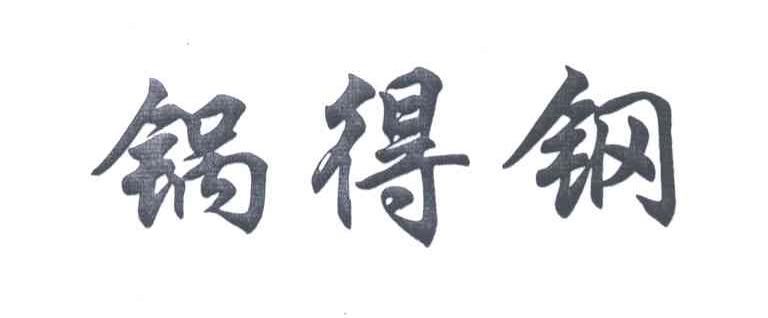 锅得钢